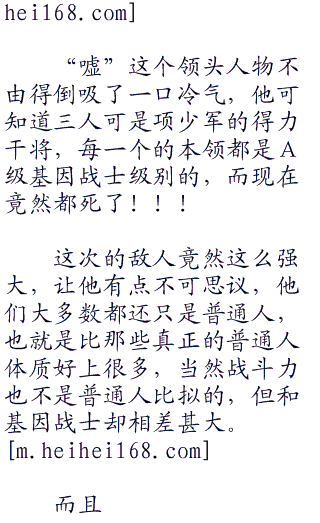 hei168.com]
“嘘”这个领头人物不
由得倒吸了一口冷气，他可
知道三人可是项少军的得力
干将，每一个的本领都是Ａ
级基因战士级别的，而现在
竟然都死了！！！
这次的敌人竟然这么强
大，让他有点不可思议，他
们大多数都还只是普通人，
也就是比那些真正的普通人
体质好上很多，当然战斗力
也不是普通人比拟的，但和
基因战士却相差甚大。
[m.heihei168.com]
而且